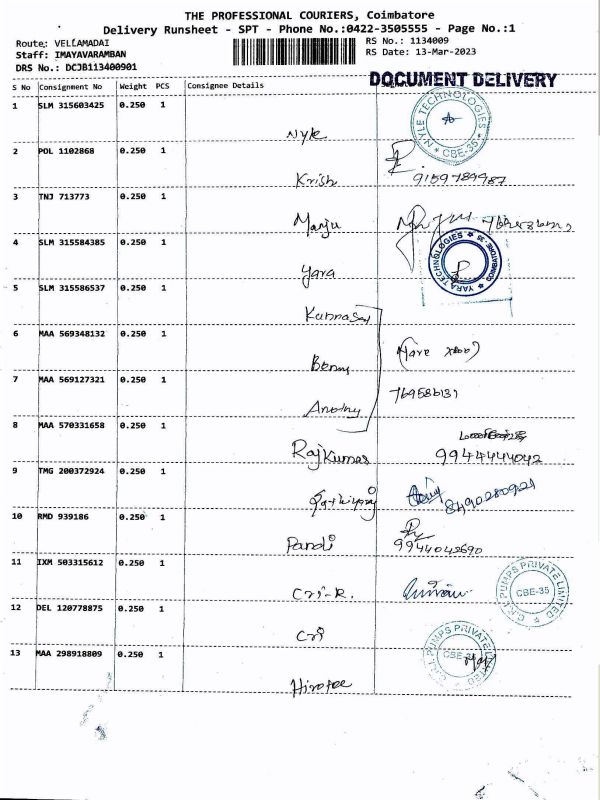 THE PROFESSIONAL COURIERS, Coimbatore
Delivery Runsheet - SPT - Phone No.:0422-3505555 - Page No.:1
Route: VELLAMADAI
RS No.: 1134009
Staff: IMAYAVARAMBAN
RS Date: 13-Mar-2023
DRS No.: DCJB113400901
DOCUMENT DELIVERY
S No Consignment No Weight PCS Consignee Details
1 SLM 315603425 0.250 1
NYLE TECHNOLOGIES * CBE-35 *
Nyle
2 POL 1102868 0.250 1
Krish 9159789987
3 TNJ 713773 0.250 1
Manju
4 SLM 315584385 0.250 1
YARA TECHNOLOGIES * COIMBATORE - 35 *
Yara
5 SLM 315586537 0.250 1
6 MAA 569348132 0.250 1
Benny
7 MAA 569127321 0.250 1
Antony
8 MAA 570331658 0.250 1
Rajkumar 9944444042
9 TMG 200372924 0.250 1
8490280921
10 RMD 939186 0.250 1
Pandi 9944042690
11 IXM 503315612 0.250 1
C.R.I. PUMPS PRIVATE LIMITED * CBE-35
Cri-R.
12 DEL 120778875 0.250 1
Cri
13 MAA 298918809 0.250 1
C.R.I. PUMPS PRIVATE LIMITED * CBE-35